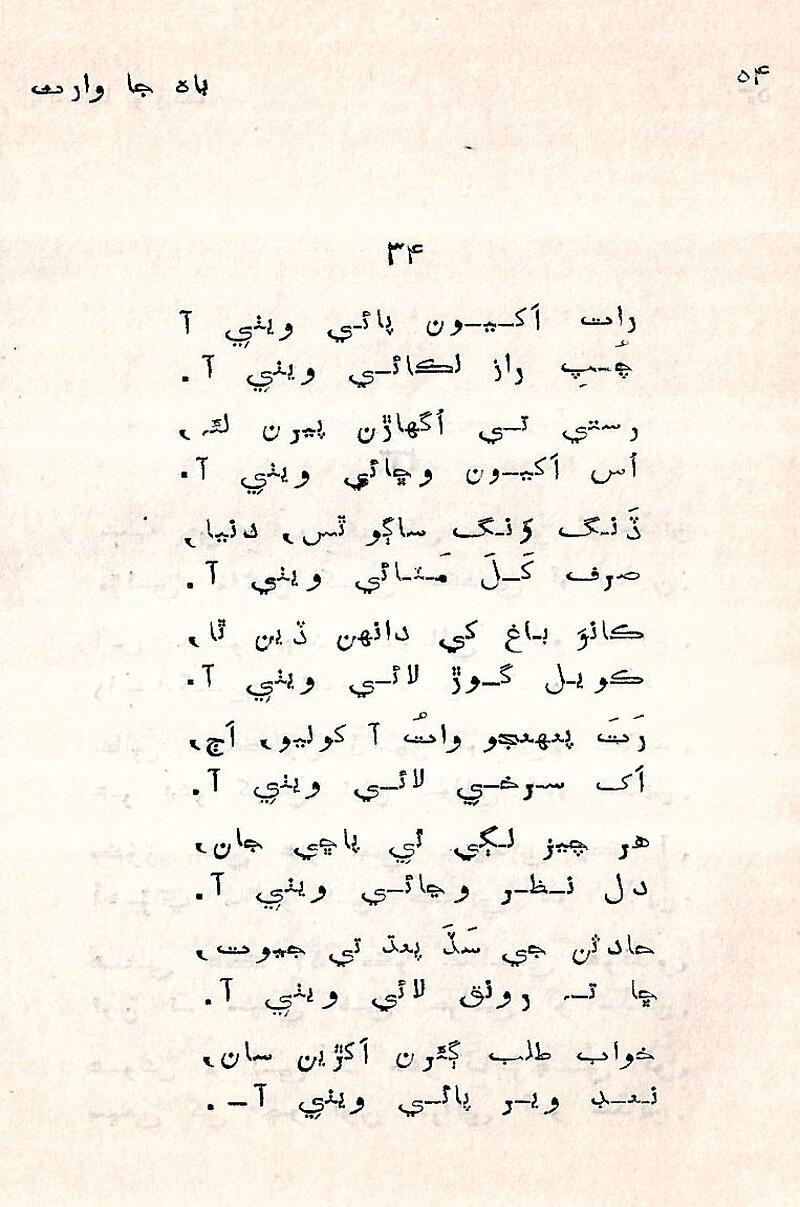 ۵۴
باه جا وارث
۳۴
رات اَکيون پائي ويٺي آ
چُپِ راز لڪائي ويٺي آ.
رستي تي اُگهاڙن پيرن لئہ،
اُس اَکيون وڇائي ويٺي آ.
ڏَنگ وَنگ ساڳو ٿس، دنيا،
صرف کَلَ مَٽائي ويٺي آ.
ڪانوَ باغ کي دانهن ڏين ٿا،
ڪويل گوڙ لائي ويٺي آ.
رَتَ پنهنجو واتُ آ کوليو، اَڄ،
اَک سرخي لائي ويٺي آ.
هر چيز لڳي ٿي پاڇي جان،
دل نظر وڃائي ويٺي آ.
حادثن جي سَڏَ پنڌ تي جيوت،
ڇا تہ رونق لائي ويٺي آ.
خواب طلب ڳڻرن اَکڙين سان،
ننڊ وير پائي ويٺي آ.